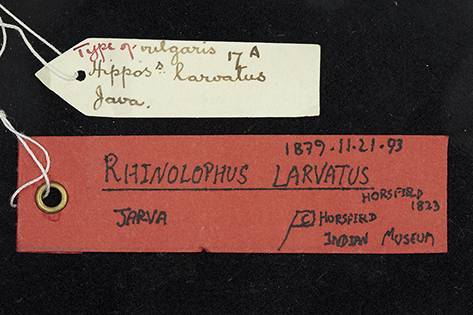 Type of vulgaris 17A
Hippos.s larvatus
Java.
1879.11.21.93
RHINOLOPHUS LARVATUS
HORSFIELD 1823
JARVA
C HORSFIELD
INDIAN MUSEUM